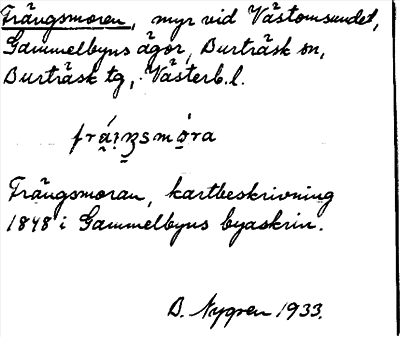 Frängsmoren, myr vid Västomsundet,
Gammelbyns ägor, Burträsk sn,
Burträsk tg, Västerb. l.
Frängsmoran, kartbeskrivning
1848 i Gammelbyns byaskrin.
B. Nygren 1933.